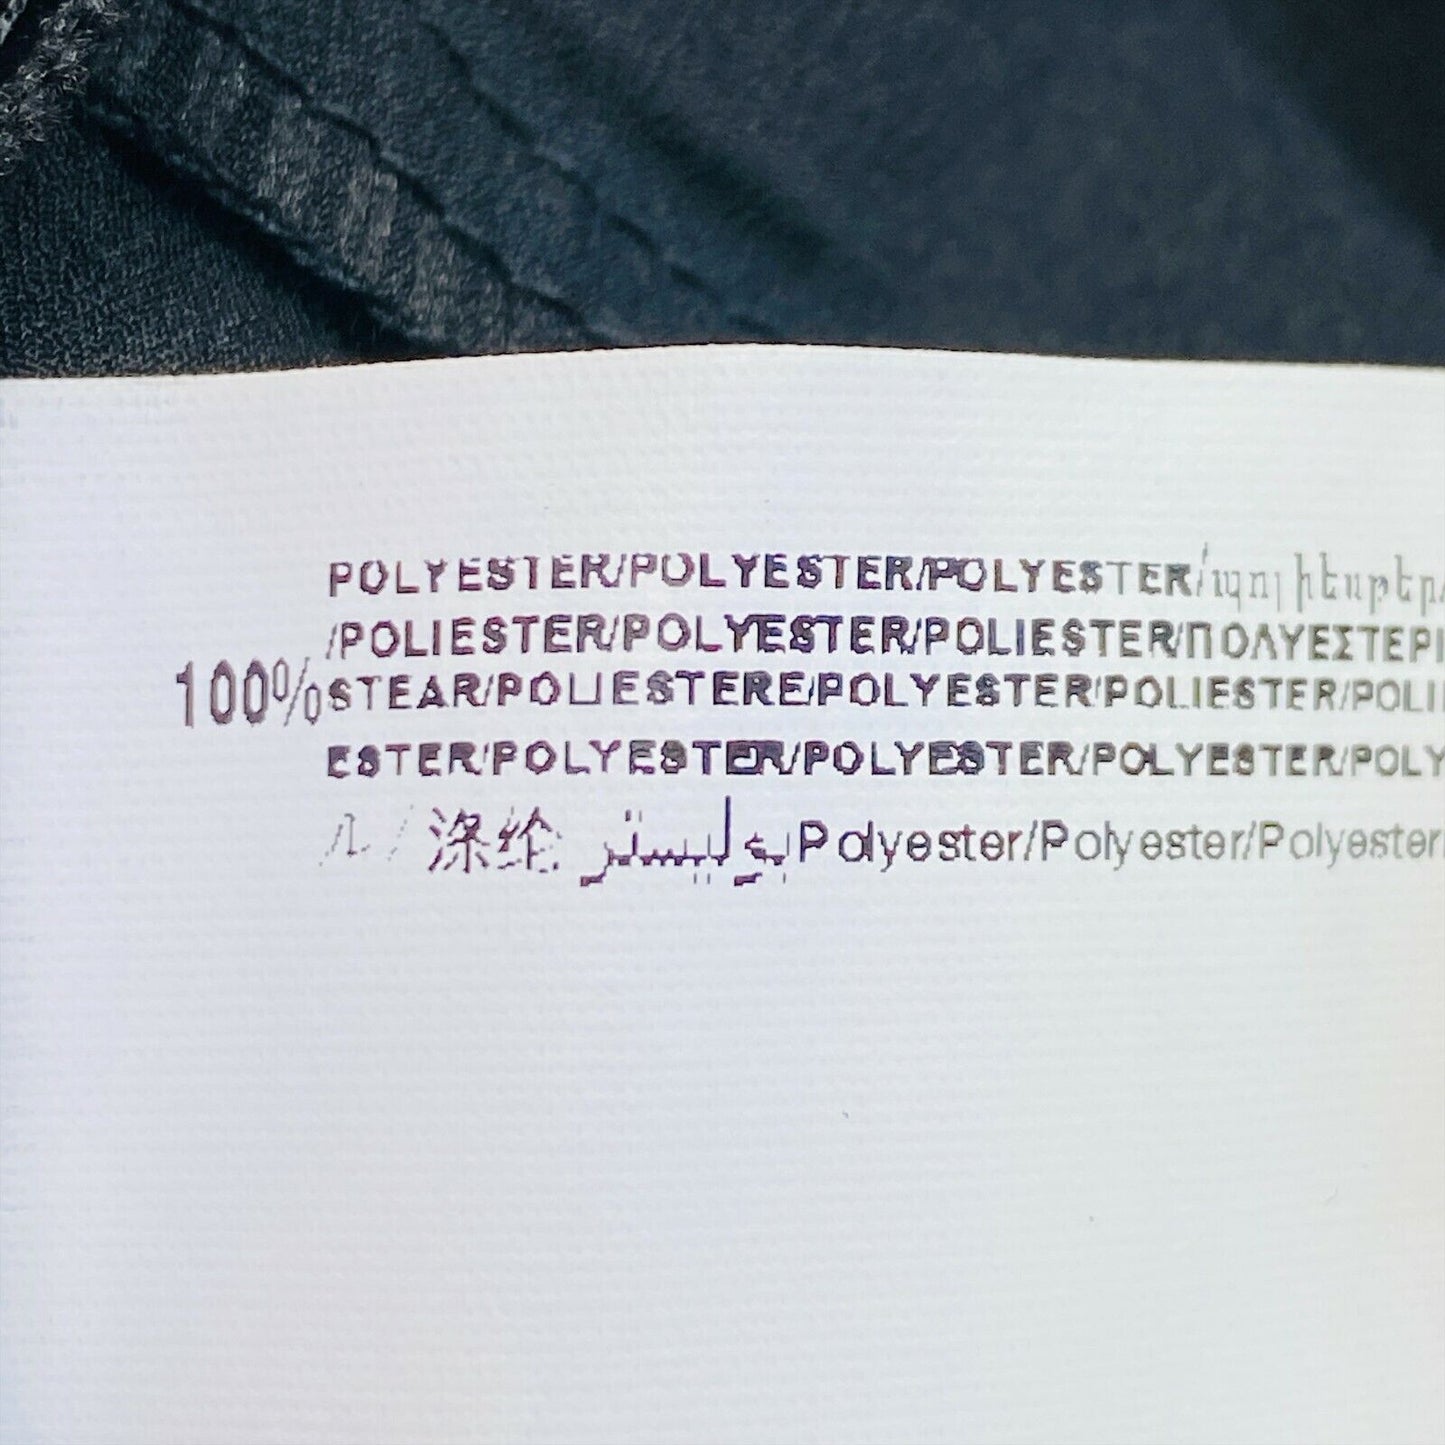 POLYESTER/POLYESTER/POLYESTER/պոլիէսթեր
/POLIESTER/POLYESTER/POLIESTER/ΠΟΛΥΕΣΤΕΡΙ
100% STEAR/POLIESTERE/POLYESTER/POLIESTER/POLI
ESTER/POLYESTER/POLYESTER/POLYESTER/POLY
/涤纶 بوليستر Polyester/Polyester/Polyester